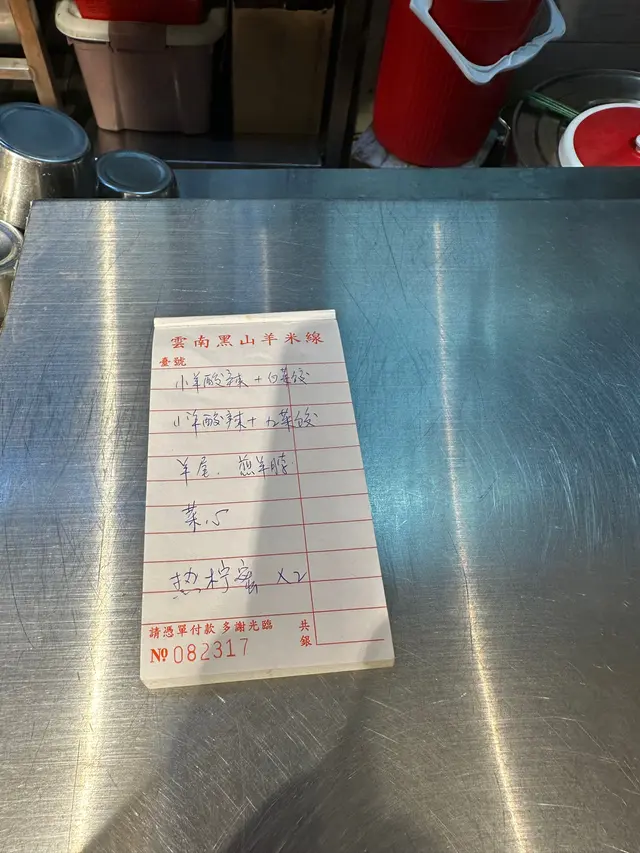 雲南黑山羊米線
臺號
小羊酸辣 + 白菜饺
小羊酸辣 + 九菜饺
羊尾、煎羊膶
菜心
热柠蜜 x2
請憑單付款 多謝光臨
共銀
№ 082317